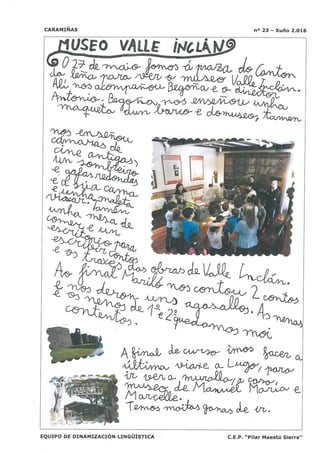 CARAMIÑAS
nº 23 – Xuño 2.016
MUSEO VALLE INCLÁN
O 27 de maio fomos á praza do Canton
da leña para ver o museo Valle Inclán.
Alí nos acompañou Begoña e o director
Antonio. Begoña, nos enseñou unha
maqueta dun barco e do museo, tamen
nos enseñou
cámaras de
cine antigas,
un sombreiro
e gafas redondas
e a súa cama
e unha maleta
viaxar. Tamén
unha mesa de
comer e un
escritorio para
escribir contos
e os traxes das obras de Valle Inclán.
Ao final Mariló nos contou 2 contos
e nos deron uns agasallos. As nenas
e os nenos de 1º e 2º quedamos moi
contentos.
A final de curso imos facer a
última viaxe a Lugo, para
ir ver a muralla, a casa,
museo de Manuel Maria e
Marcelle.
Temos moitas ganas de ir.
EQUIPO DE DINAMIZACIÓN LINGÜÍSTICA
C.E.P. "Pilar Maestú Sierra"